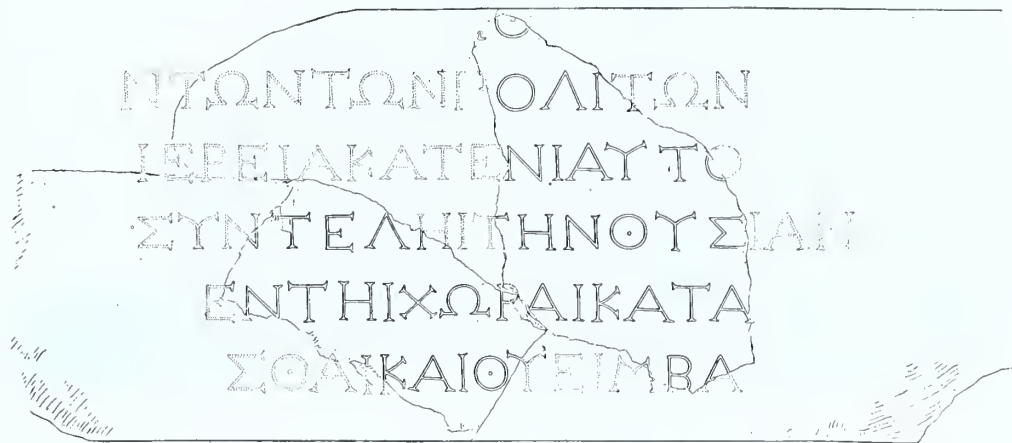 Ο
ΝΤΩΝΤΩΝΠΟΛΙΤΩΝ
ΙΕΡΕΙΑΚΑΤΕΝΙΑΥΤΟ
ΣΥΝΤΕΛΗΙΤΗΝΘΥΣΙΑΝ
ΕΝΤΗΙΧΩΡΑΙΚΑΤΑ
ΣΘΑΙΚΑΙΘΥΕΙΜΒΑ